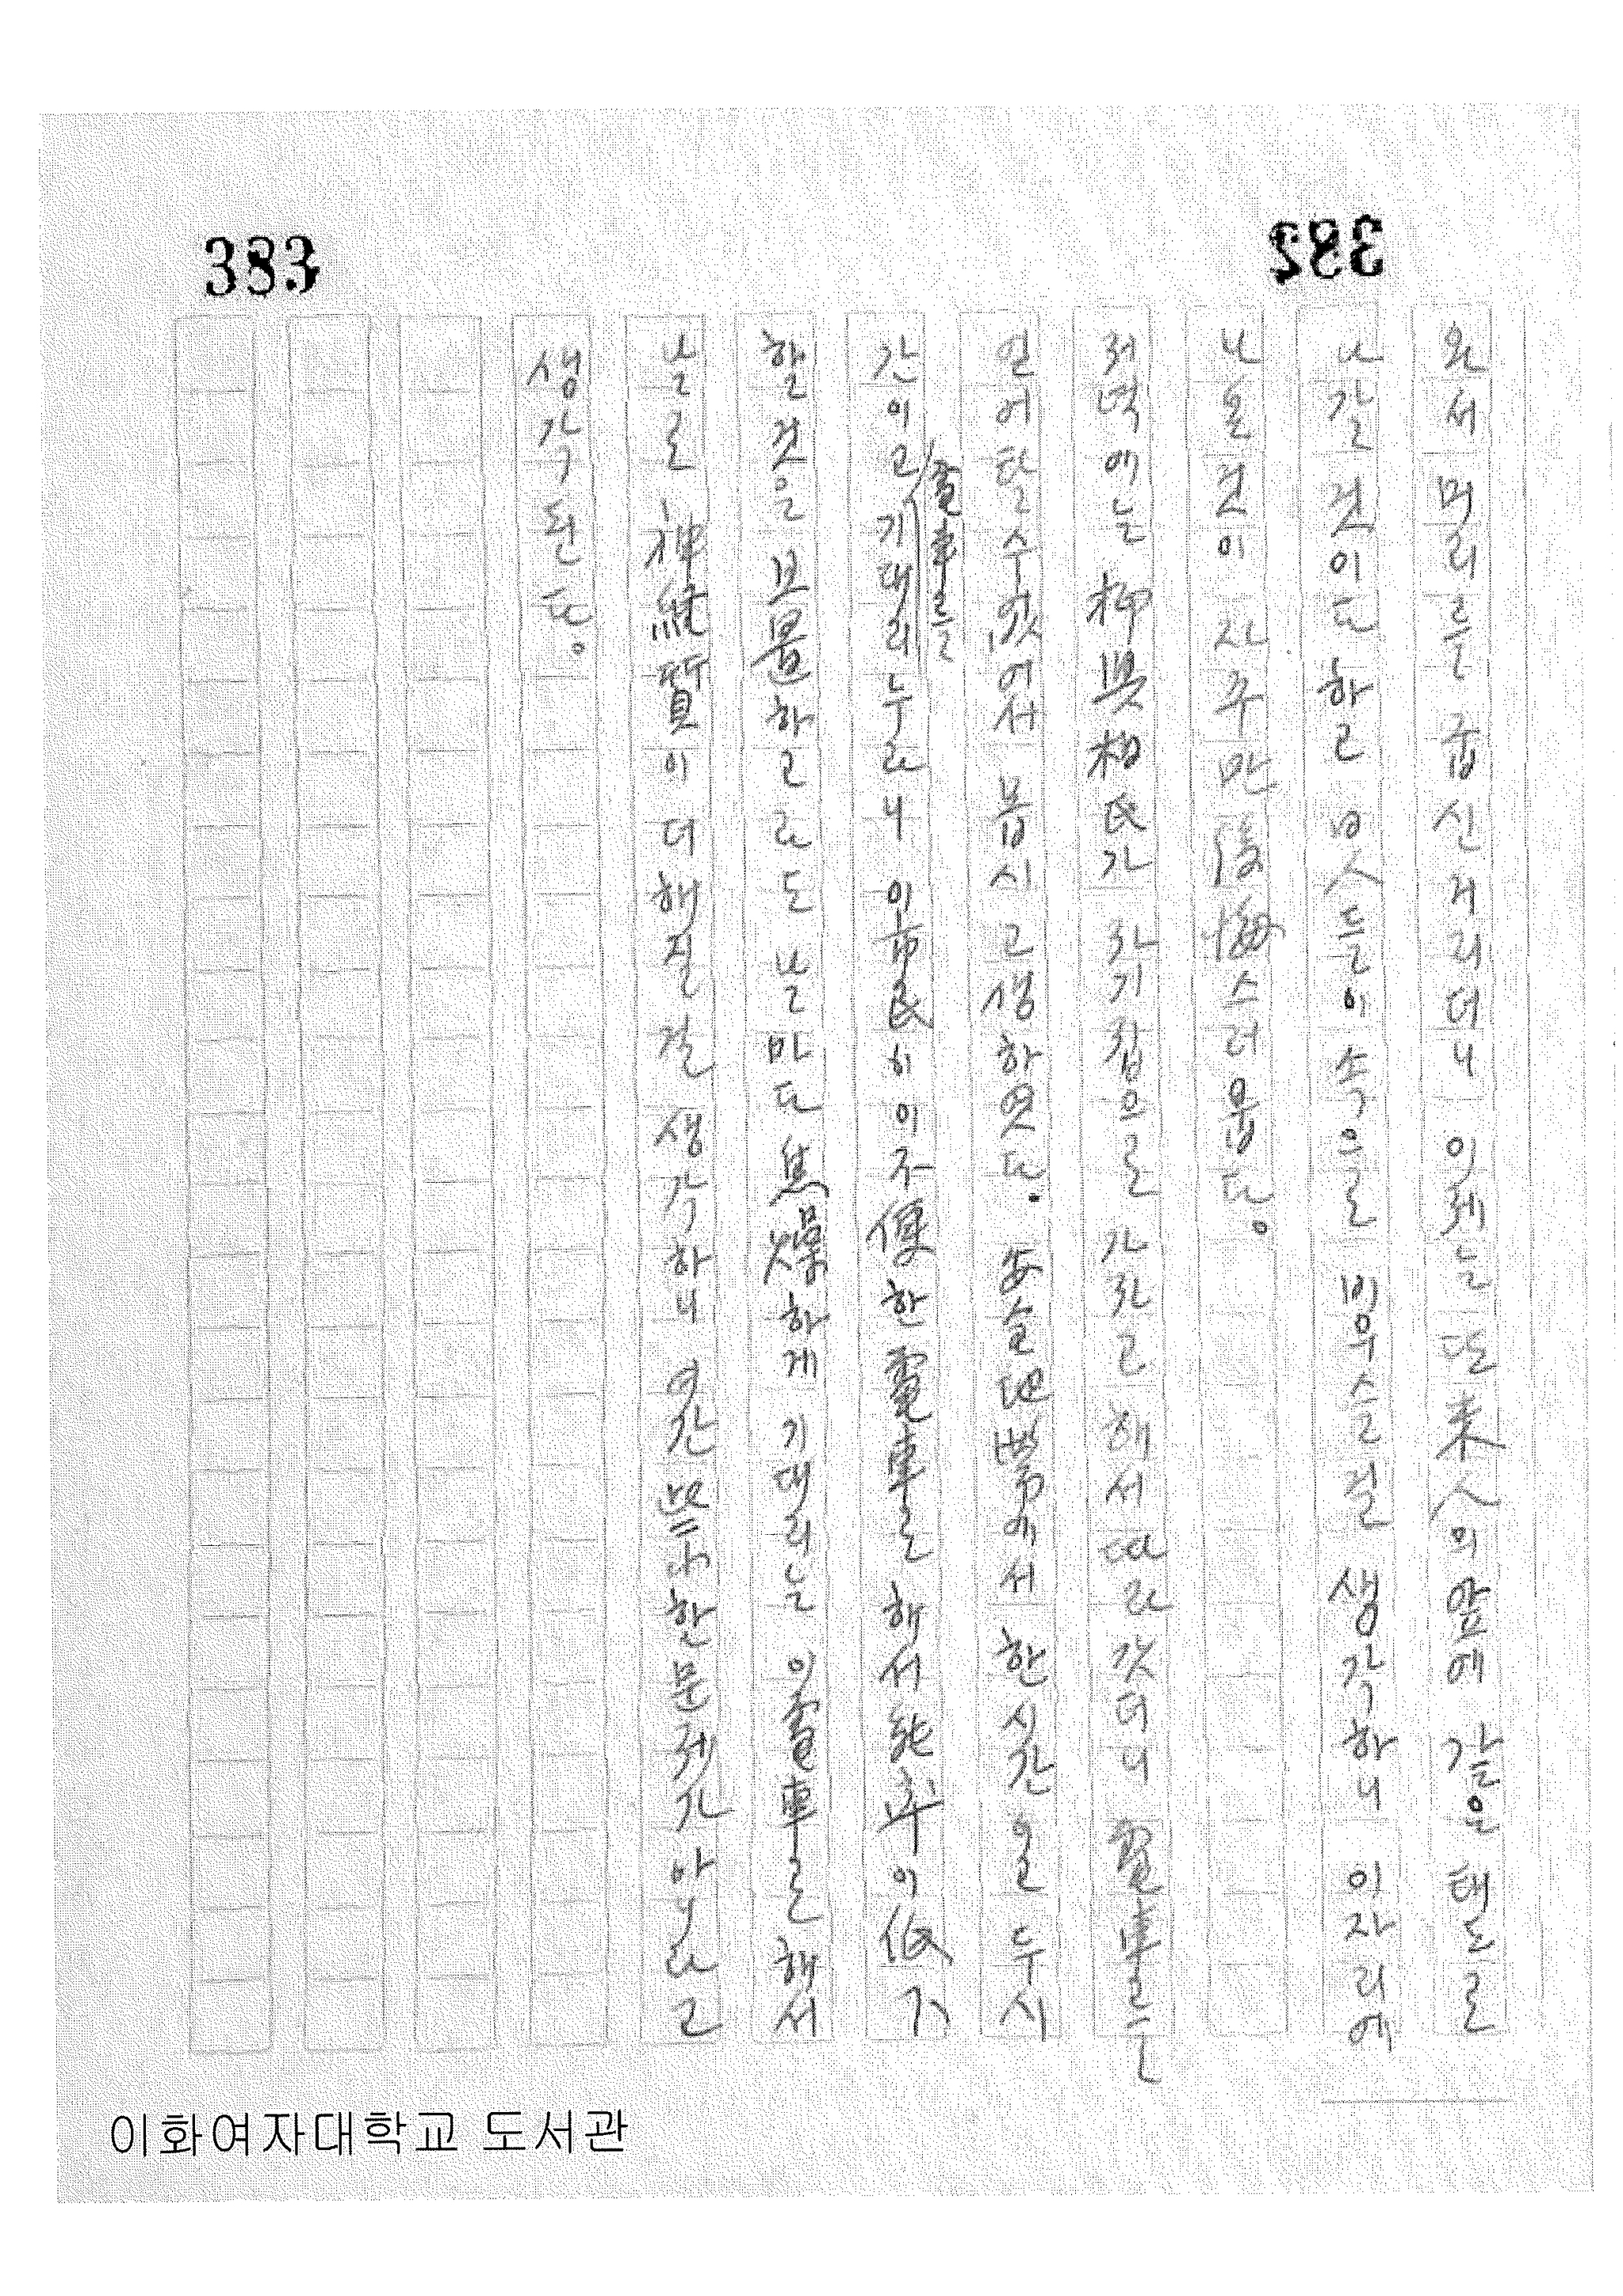 383
382
와서 머리를 굽신거리더니 이제는 또 來人의 앞에 같은 태도로
나갈 것이다 하고 보는 사람들이 속으로 비우슬 걸 생각하니 이 자리에
나온 것이 자꾸만 後悔스러웁다。
저녁에는 柳興相氏가 자기 집으로 가자고 해서 따라갓더니 電車를
얻어 탈 수 없어서 몹시 고생하엿다. 安全地帶에서 한 시간 을 두 시
간이고 電車를 기대리누라니 이 市民이 이 不便한 電車로 해서 能率이 低下
할 것을 보면 하고라도 날마다 焦燥하게 기대리는 이 電車로 해서
날로 神經質이 더해질 걸 생각하니 여간 한 문제가 아니라고
생각된다。
이화여자대학교 도서관